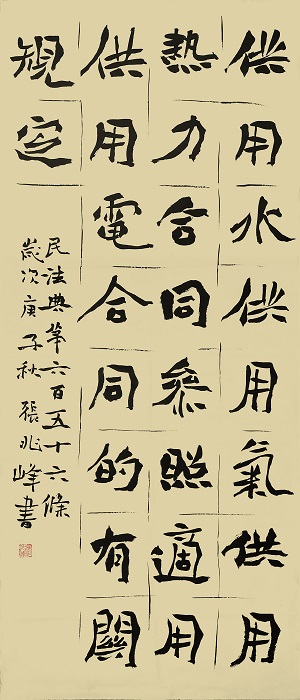 供用水供用氣供用
熱力合同參照適用
供用電合同的有關
規定
民法典第六百五十六條
歲次庚子秋張兆峰書